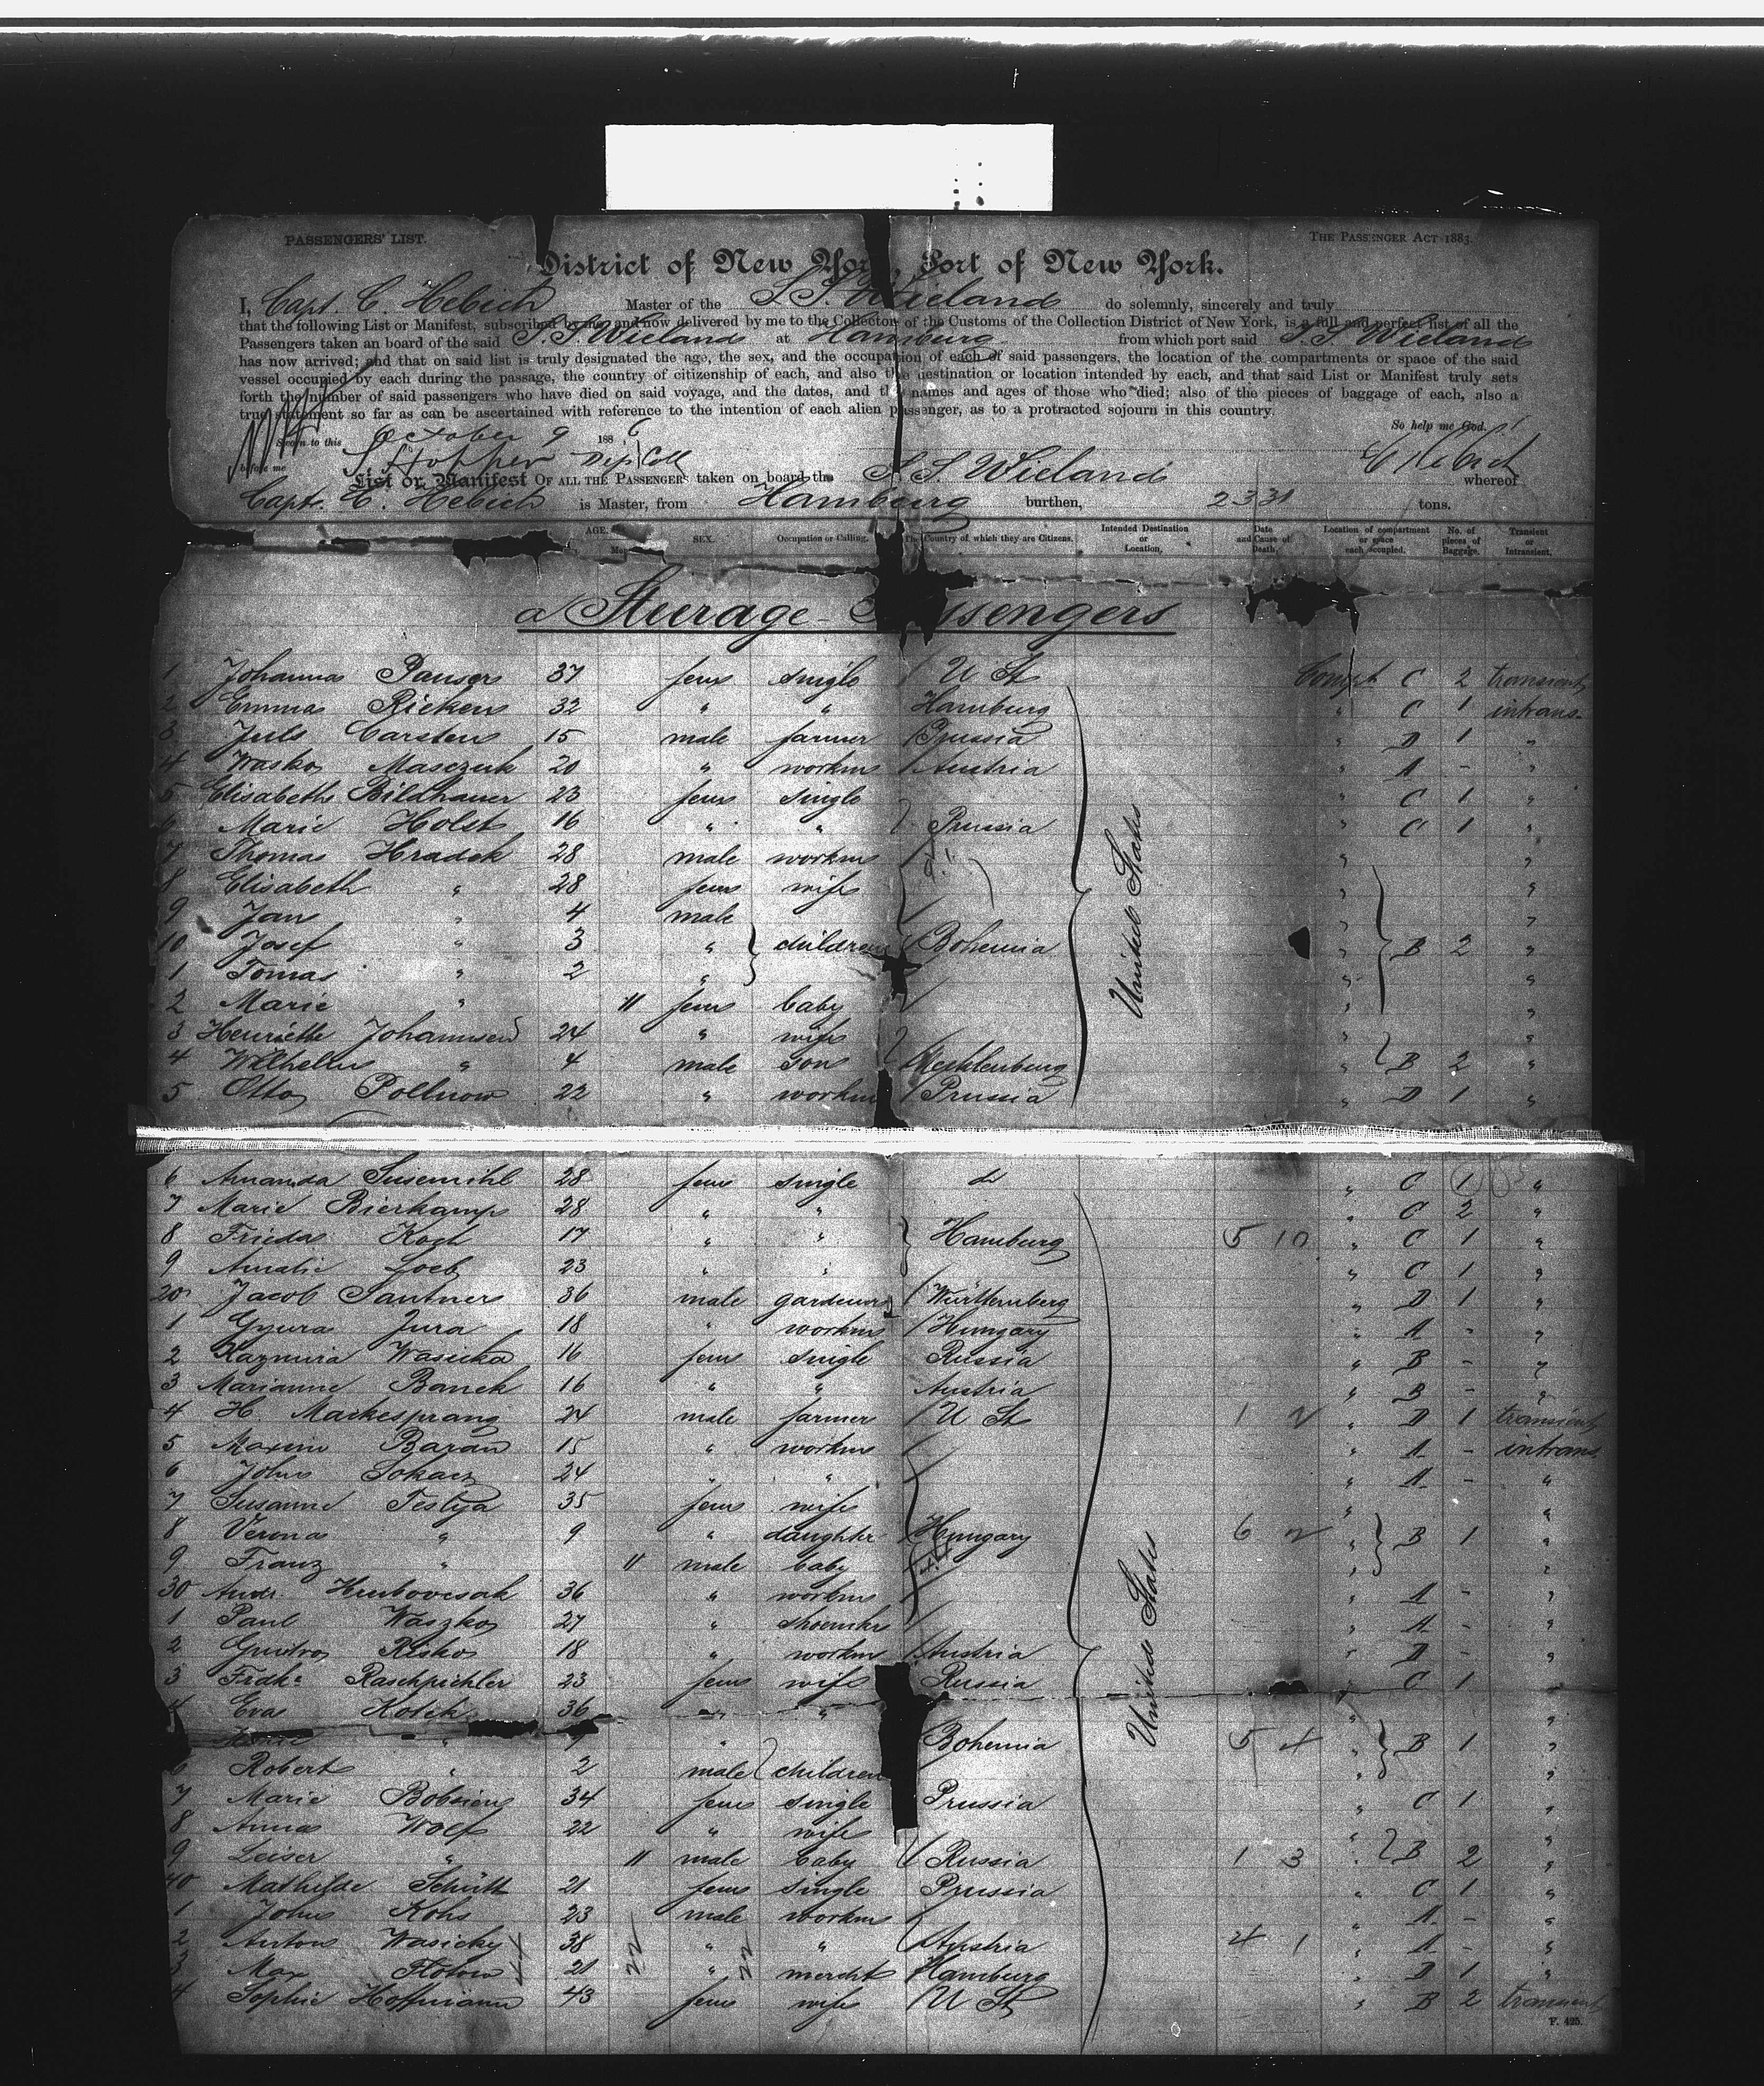 PASSENGERS' LIST.
THE PASSENGER ACT 1883.
District of New York, Port of New York.
I, Capt. C. Hebich Master of the S. S. Wieland do solemnly, sincerely and truly
that the following List or Manifest, subscribed by me, and now delivered by me to the Collector of the Customs of the Collection District of New York, is a full and perfect list of all the
Passengers taken an board of the said S. S. Wieland at Hamburg from which port said S. S. Wieland
has now arrived; and that on said list is truly designated the age, the sex, and the occupation of each of said passengers, the location of the compartments or space of the said
vessel occupied by each during the passage, the country of citizenship of each, and also the destination or location intended by each, and that said List or Manifest truly sets
forth the number of said passengers who have died on said voyage, and the dates, and the names and ages of those who died; also of the pieces of baggage of each, also a
true statement so far as can be ascertained with reference to the intention of each alien passenger, as to a protracted sojourn in this country.
So help me God.
Sworn to this October 9 1886
before me S. Hopper Dep Coll C Hebich
List or Manifest OF ALL THE PASSENGERS taken on board the S. S. Wieland whereof
Capt. C. Hebich is Master, from Hamburg burthen, 2331 tons.
AGE. SEX. Occupation or Calling. The Country of which they are Citizens. Intended Destination or Location, Date and Cause of Death, Location of compartment or space each occupied. No. of pieces of Baggage. Transient or Intransient.
a Steerage-Passengers
1 Johanna Panser 37 fem single U St Compt C 2 transient
2 Emma Rickers 32 " " Hamburg " C 1 intrans.
3 Juls Carstens 15 male farmer Prussia " D 1 "
4 Wasko Masczuk 20 " workm Austria " A - "
5 Elisabeth Bildhauer 23 fem single " C 1 "
6 Marie Holst 16 " " Prussia " C 1 "
7 Thomas Hradek 28 male workm " "
8 Elisabeth " 28 fem wife " "
9 Jan " 4 male " "
10 Josef " 3 " children Bohemia " B 2 "
1 Tomas " 2 " " "
2 Marie " 11 fem baby " "
3 Henriette Johannsen 24 " wife " "
4 Wilhelm " 4 male son Mecklenburg " B 2 "
5 Otto Pollnow 22 " workm Prussia " D 1 "
United States
6 Amanda Susemihl 28 fem single do " C 1 "
7 Marie Bierkamp 28 " " " C 2 "
8 Frieda Koch 17 " " Hamburg 5 10 " C 1 "
9 Amalie Joeb 23 " " " C 1 "
20 Jacob Santner 36 male gardener Württemberg " D 1 "
1 Gyura Jura 18 " workm Hungary " A - "
2 Kazmira Wasicka 16 fem single Russia " B - "
3 Marianne Banek 16 " " Austria " B - "
4 H. Mackesprang 24 male farmer U St 1 2 " D 1 transient
5 Maxim Baran 15 " workm " A - intrans.
6 Johns Sokacz 24 " " " A - "
7 Susanne Testya 35 fem wife " "
8 Verona " 9 " daughter Hungary 6 2 " B 1 "
9 Franz " 11 male baby " "
30 Andr. Hrubovcsak 36 " workm " A - "
1 Paul Waszko 27 " shoemkr " A - "
2 Risko 18 " workm Austria " D - "
3 Fredke Raschpichler 23 fem wife Russia " C 1 "
4 Eva Kotek 36 " " " "
" " Bohemia 5 4 " B 1 "
6 Robert " 2 male children " "
7 Marie Bobsien 34 fem single Prussia " C 1 "
8 Anna Wolf 22 " wife " "
9 Leiser " 11 male baby Russia 1 3 " B 2 "
40 Mathilde Schütt 21 fem single Prussia " C 1 "
1 Johns Kohs 23 male workm " A - "
2 Anton Wasicky 38 " " Austria 4 1 " A - "
3 Max Flotow 21 " mercht Hamburg " D 1 "
4 Sophie Hoffmann 43 fem wife U St " B 2 transient
United States
F. 425.